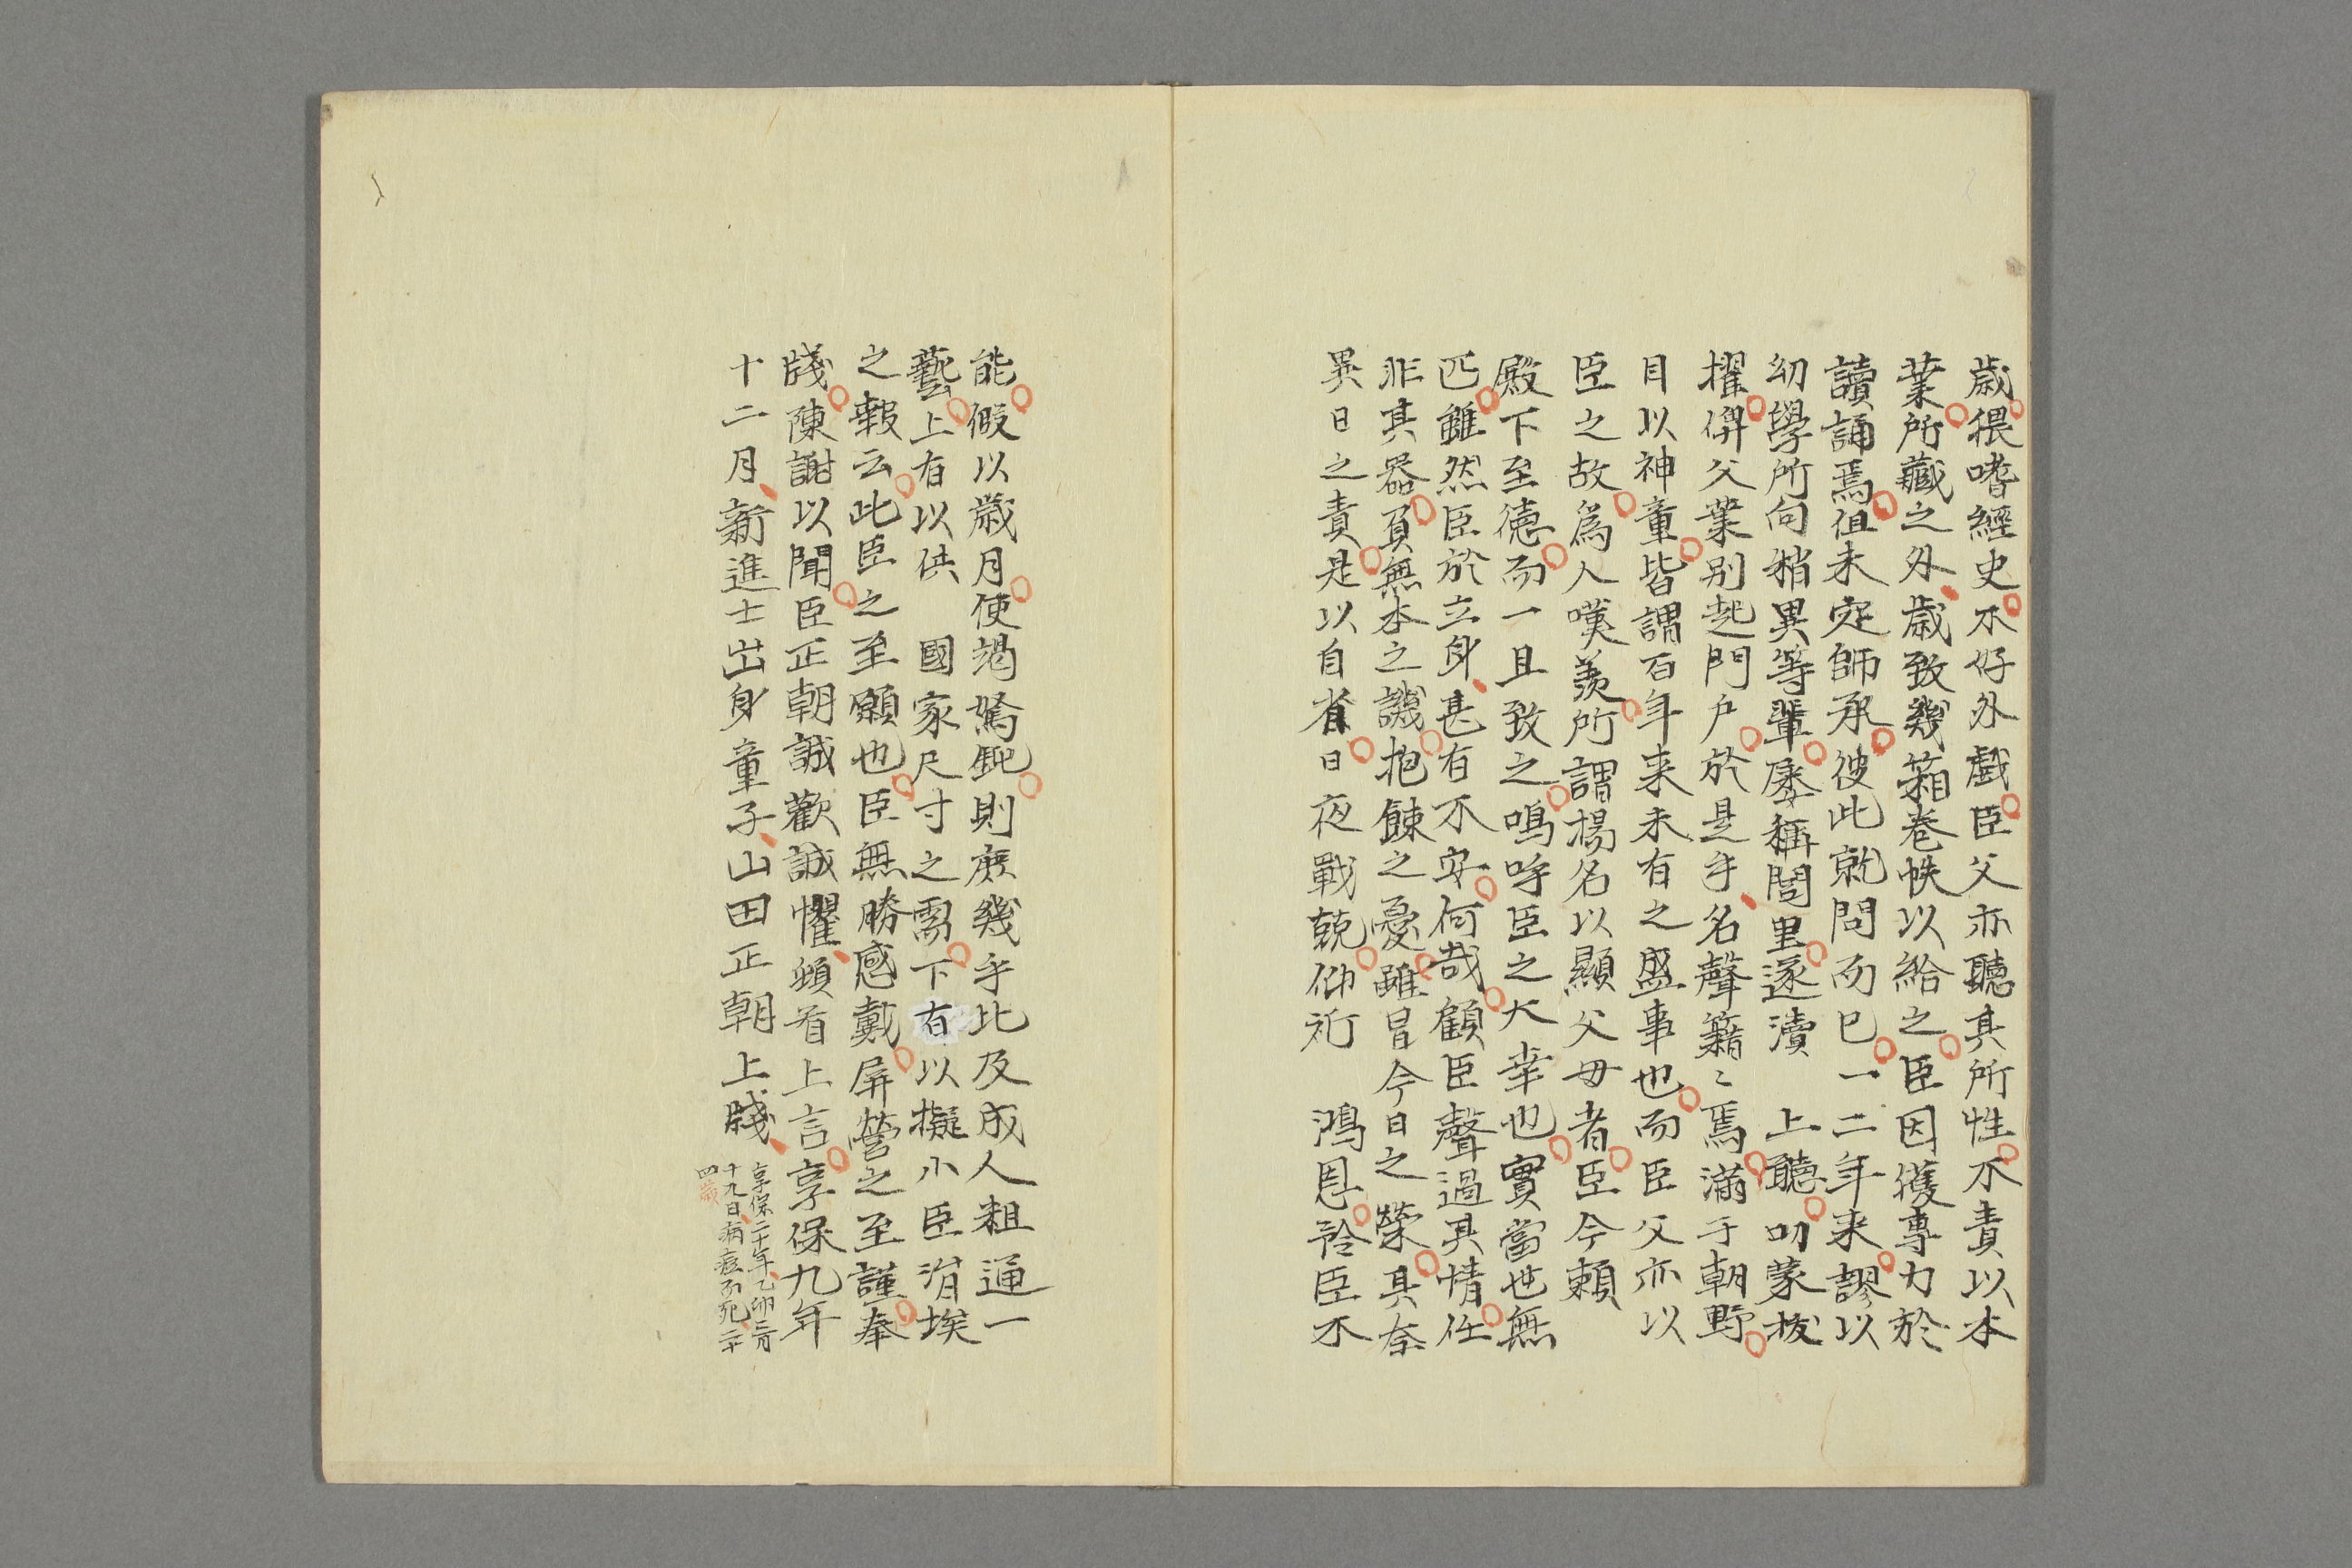 歳猥嗜經史不好外戲臣父亦聽其所性不責以本
業所藏之外歳致幾箱巻帙以給之臣因獲專力於
讀誦焉但未定師承彼此就問而已一二年来謬以
幼學所向稍異等輩屡稱閭里逐瀆　上聽叨蒙抜
擢倂父業別起門戸於是乎名聲籍〻焉滿于朝野
目以神童皆謂百年来未有之盛事也而臣父亦以
臣之故爲人嘆羨所謂揚名以顯父毋者臣今頼
殿下至德而一旦致之嗚呼臣之大幸也實當世無
匹雖然臣於立身甚有不安何哉顧臣聲過其情任
非其器負無本之譏抱餗之憂雖冒今日之榮其奈
異日之責是以自省日夜戰兢仰祈　鴻恩矜臣不
能假以歳月使竭駑鈍則庶幾乎比及成人粗通一
藝上有以供　國家尺寸之需下有以擬小臣涓埃
之報云此臣之至願也臣無勝感戴屏營之至謹奉
牋陳謝以聞臣正朝誠歡誠懼頓首上言享保九年
十二月新進士出身童子山田正朝上牋
享保二十年乙卯二月
十九日病痘而死二十
四歳